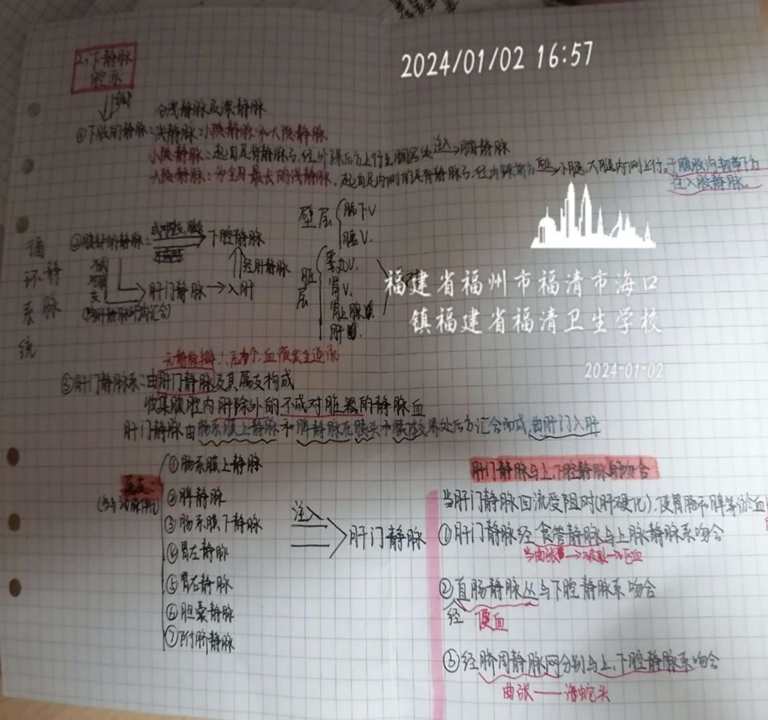 2024/01/02 16:57
2、下腔静脉
分浅静脉及深静脉
①下肢的静脉：浅静脉：小隐静脉和大隐静脉
小隐静脉：起自足背静脉弓，经外踝后方上行至腘窝注入→腘静脉
大隐静脉：为全身最长的浅静脉，起自足内侧的足背静脉弓，经内踝前方→小腿、大腿内侧上行，
注入股静脉。
壁层 膈下V
腰V.
循环系统 静脉
的静脉 下腔静脉
肝静脉
脏层 睾丸V.
肾V.
肝门静脉→入肝
福建省福州市福清市海口
镇福建省福清卫生学校
2024-01-02
无静脉瓣
③肝门静脉系：由肝门静脉及其属支构成
收集腹腔内肝除外的不成对脏器的静脉血
肝门静脉由肠系膜上静脉和脾静脉在胰头和胰体交界处后方汇合而成，由肝门入肝
①肠系膜上静脉
②脾静脉
③肠系膜下静脉
④胃左静脉
⑤胃右静脉
⑥胆囊静脉
⑦附脐静脉
注入
肝门静脉
肝门静脉与上、下腔静脉的吻合
当肝门静脉回流受阻时(肝硬化)，使胃肠和脾等淤血
①肝门静脉经食管静脉与上腔静脉系吻合
②直肠静脉丛与下腔静脉系吻合
经 便血
③经脐周静脉网分别与上、下腔静脉系吻合
曲张——海蛇头